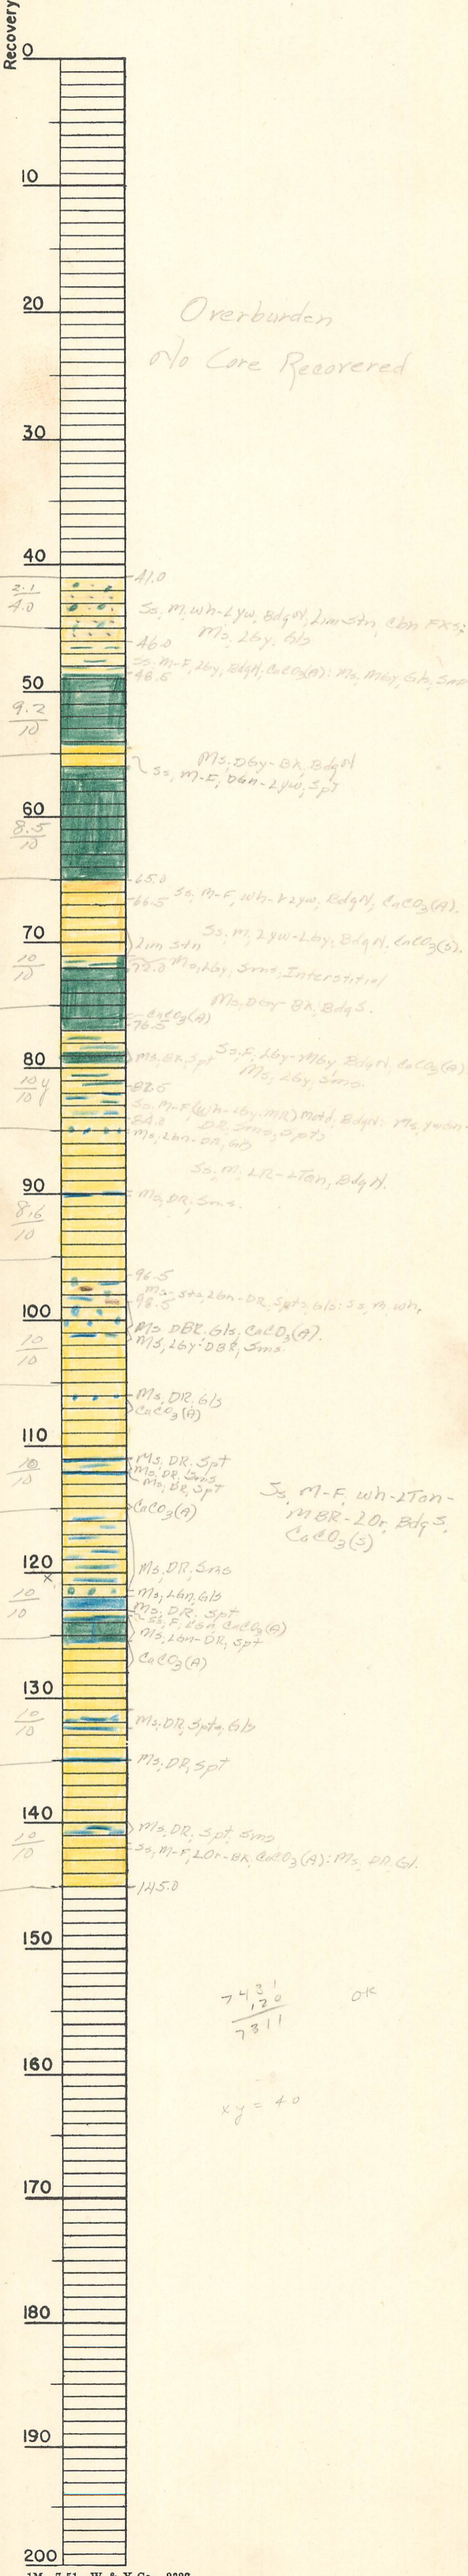 Recovery
0
10
20
Overburden
No Core Recovered
30
40
41.0
2.1
4.0
Ss, M, wh-Lyw, BdgN, Lim Stn, Cbn FXs;
Ms, Lgy, Gls
46.0
Ss, M-F, Lgy, BdgN, CaCO3(A): Ms, Mgy, Gls, Sms
48.5
50
9.2
10
Ms, DGy-Bk, BdgN
Ss, M-F, DGn-Lyw, Spt
60
8.5
10
65.0
66.5
Ss, M-F, wh-VLyw, BdgN, CaCO3(A).
70
Ss, M, Lyw-Lgy, BdgN, CaCO3(S).
Lim Stn
10
10
72.0
Ms, Lgy, Sms, Interstitial
Ms, DGy-Bk, BdgS.
CaCO3(A)
76.5
80
Ms, Bk, Spt
Ss, F, Lgy-Mgy, BdgN, CaCO3(A)
Ms, Lgy, Sms.
10
10
82.5
Ss, M-F (Wh-Lgy-MR) Motd, BdgN: Ms,
84.0
DR, Sms, Spts
Ms, Lgn-DR, Gls
Ss, M, LR-LTan, BdgN.
90
Ms, DR, Sms.
8.6
10
96.5
Ms-Sts, LGn-DR, Spts, Gls: Ss, M, wh,
98.5
100
Ms DBR, Gls, CaCO3(A).
Ms, Lgy-DBR, Sms
10
10
Ms, DR, Gls
CaCO3(A)
110
Ms, DR, Spt
Ms, DR, Sms
Ms, DR, Spt
10
10
Ss, M-F, wh-LTan-
MBR-LOr, BdgS,
CaCO3(S)
CaCO3(A)
120
x
Ms, DR, Sms
Ms, LGn, Gls
10
10
Ms, DR, Spt
Ss, F, LGn, CaCO3(A)
Ms, LGn-DR, Spt
CaCO3(A)
130
10
10
Ms, DR, Spts, Gls
Ms, DR, Spt
140
Ms, DR, Spt, Sms
10
10
Ss, M-F, LOr-BR, CaCO3(A): Ms, DR, Gl.
145.0
150
7431
120
7311
OK
160
xy = 40
170
180
190
200